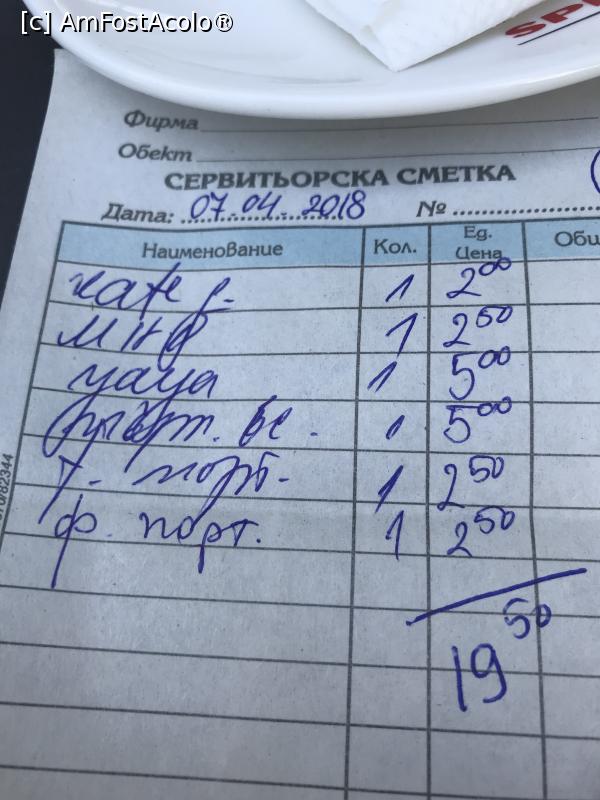 [c] AmFostAcolo®
SPE
Фирма
Обект
СЕРВИТЬОРСКА СМЕТКА
Дата: 07.04.2018 №
Наименование Кол. Ед. Цена Общ
кафе 1 2 00
1 2 50
1 5 00
1 5 00
т. порт. 1 2 50
ф. порт. 1 2 50
19 50